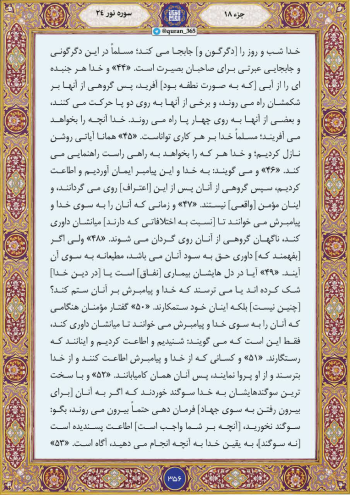 جزء ۱۸
سوره نور ۲۴
@quran_365
خدا شب و روز را [دگرگون و] جابجا می کند؛ مسلماً در این دگرگونی
و جابجایی عبرتی برای صاحبان بصیرت است. «۴۴» و خدا هر جنبده
ای را از آبی [که به صورت نطفه بود] آفرید، پس گروهی از آنها بر
شکمشان راه می روند، و برخی از آنها به روی دو پا حرکت می کنند،
و بعضی از آنها به روی چهار پا راه می روند. خدا آنچه را بخواهد
می آفریند؛ مسلماً خدا بر هر کاری تواناست. «۴۵» همانا آیاتی روشن
نازل کردیم؛ و خدا هر که را بخواهد به راهی راست راهنمایی می
کند. «۴۶» و می گویند: به خدا و این پیامبر ایمان آوردیم و اطاعت
کردیم، سپس گروهی از آنان پس از این [اعتراف] روی می گردانند، و
اینان مؤمن [واقعی] نیستند. «۴۷» و زمانی که آنان را به سوی خدا و
پیامبرش می خوانند تا [نسبت به اختلافاتی که دارند] میانشان داوری
کند، ناگهان گروهی از آنان روی گردان می شوند. «۴۸» ولی اگر
[بفهمند که] داوری حق به سود آنان می باشد، مطیعانه به سوی آن
آیند. «۴۹» آیا در دل هایشان بیماری [نفاق] است یا [در دین خدا]
شک کرده اند یا می ترسند که خدا و پیامبرش بر آنان ستم کند؟
[چنین نیست] بلکه اینان خود ستمکارند. «۵۰» گفتار مؤمنان هنگامی
که آنان را به سوی خدا و پیامبرش می خوانند تا میانشان داوری کند،
فقط این است که می گویند: شنیدیم و اطاعت کردیم و اینانند که
رستگارند. «۵۱» و کسانی که از خدا و پیامبرش اطاعت کنند و از خدا
بترسند و از او پروا نمایند، پس آنان همان کامیابانند. «۵۲» و با سخت
ترین سوگندهایشان به خدا سوگند خوردند که اگر به آنان [برای
بیرون رفتن به سوی جهاد] فرمان دهی حتماً بیرون می روند، بگو:
سوگند نخورید، [آنچه بر شما واجب است] اطاعت پسندیده است
[نه سوگند]، به یقین خدا به آنچه انجام می دهید، آگاه است. «۵۳»
۳۵۶